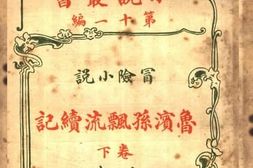 第十一編
冒險小說
魯濱孫飄流續記
卷下